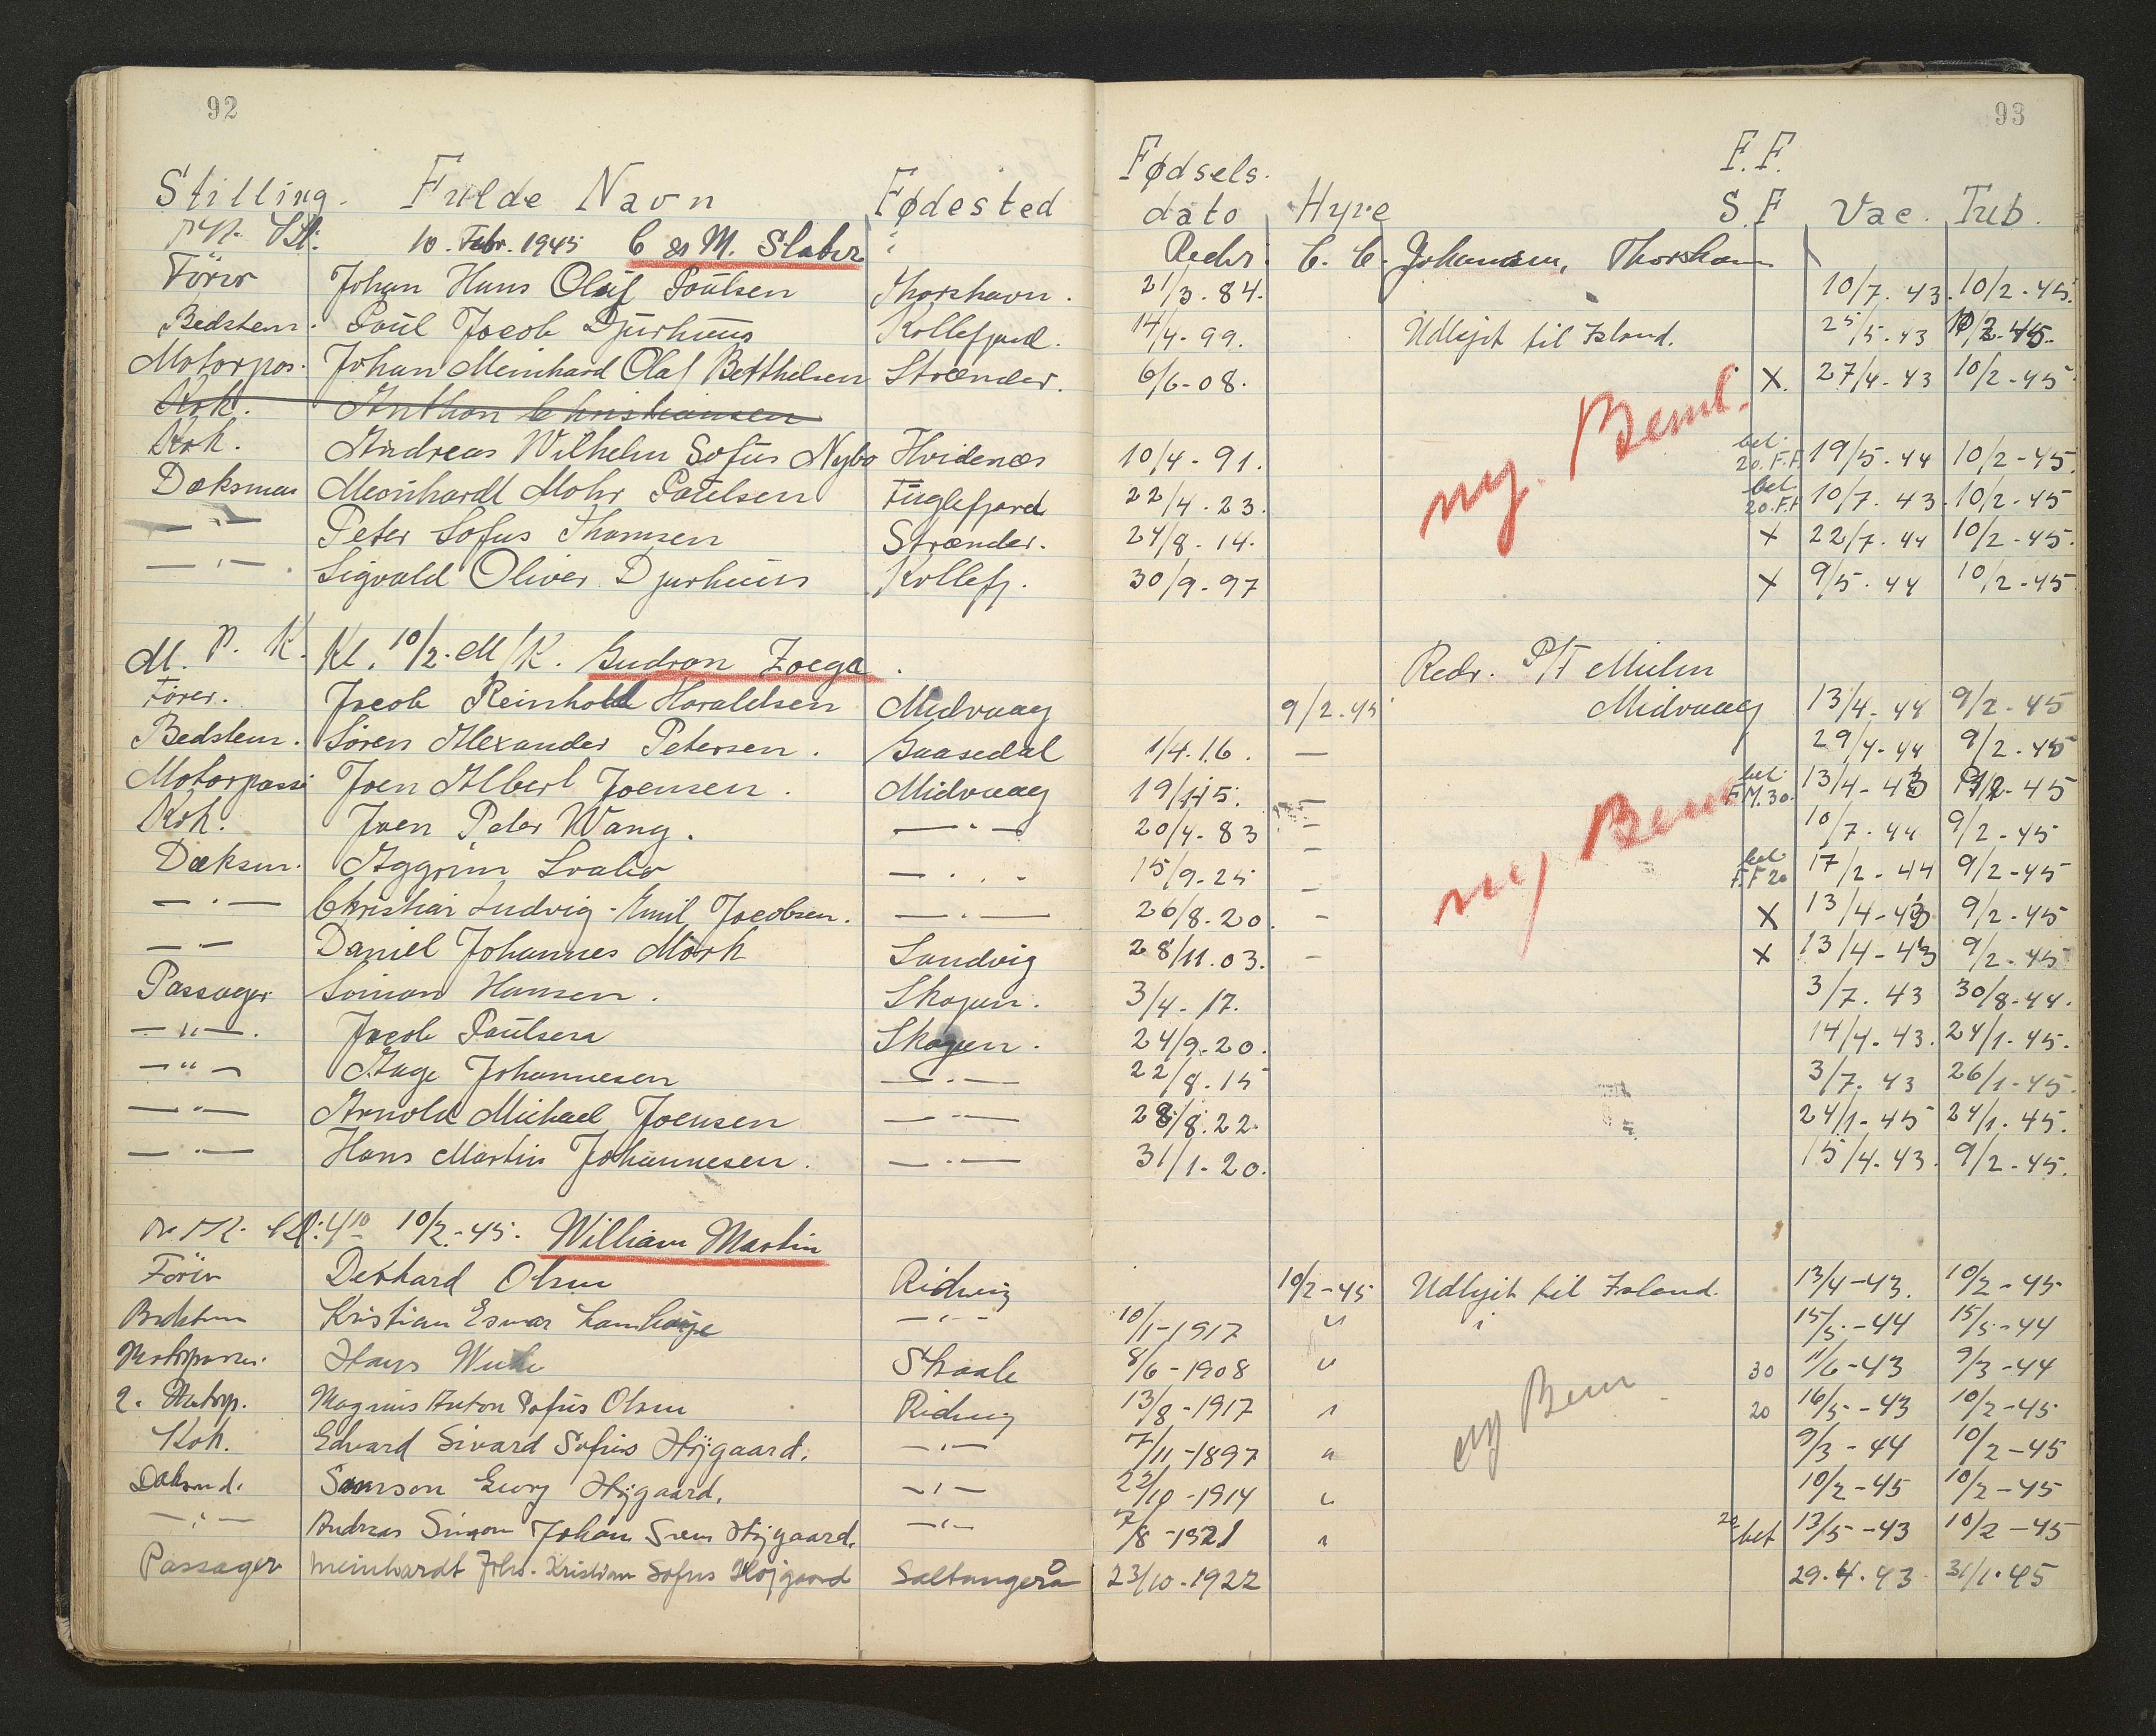 92
93
Stilling. Fulde Navn Fødested Fødsels. dato Hyre F.F. S.F Vac. Tub.
10. Febr. 1945 C & M. Redri: C. C. Johansen, Thorshavn
Förer Johan Hans Oluf Poulsen Thorshavn. 21/3. 84. 10/7. 43. 10/2-45.
Bedstem. Poul Jacob Djurhuus Kollefjord. 14/4-99. Udlejet til Island. 25/5. 43 10/2-45.
Motorpas. Johan Meinhard Olaf Berthelsen Strænder. 6/6-08. X. 27/4-43 10/2-45
Kok. Anthon Christiansen
Kok. Andreas Wilhelm Sofus Nybo Hvidenæs 10/4-91. bet. 20.F.F. 19/5-44 10/2-45.
Dæksman Meinhardt Mohr Poulsen Fuglefjord 22/4. 23. bet. 20.F.F 10/7. 43. 10/2-45
— " — Peter Sofus Thomsen Strænder. 24/8-14. X 22/7. 44 10/2-45.
— " — Sigvald Oliver Djurhuus Kollefj. 30/9-97 X 9/5. 44 10/2-45
ny. Beml.
M. P. K. Kl. 10/2. M/K. Gudron Zoega. Redr. P/F Midvaag
Förer. Jacob Reinhold Haraldsen Midvaag 9/2.45 13/4-44 9/2-45
Bedstem. Sören Alexander Petersen. Gaasedal 1/4.16. — 29/4-44 9/2-45
Motorpasse Joen Albert Joensen. Midvaag — bet. F.M.30. 13/4-43 9/2-45
Kok. Joen Peter Wang. — " — 20/4-83 — 10/7-44 9/2-45
Dæksm. Aggrim Svabo — " — 15/9-25 — bet F.F 20 17/2-44 9/2-45
— " — Christian Ludvig-Emil Jacobsen. — " — 26/8.20. — X 13/4-43 9/2-45
— " — Daniel Johannes Mörk Sandvig 28/11.03. — X 13/4-43 9/2-45
ny Bem
Passager Simon Hansen. Skopun. 3/4-17. 3/7. 43 30/8-44.
— " —. Jacob Poulsen Skopun. 24/9-20. 14/4-43. 24/1-45.
— " — Aage Johannesen — " — 22/8.15 3/7. 43 26/1-45.
— " — Arnold Michael Joensen — " — 28/8.22. 24/1-45 24/1.45.
— " — Hans Martin Johannesen. — " — 31/1-20. 15/4-43. 9/2-45.
10/2-45. William Martin
Förer Dethard Olsen Ridevig 10/2-45 Udlejet til Island. 13/4-43. 10/2-45
Kristian Esmar Lamhauge — " — 10/1-1917 " " 15/5-44 15/5-44
Motorpasser. Hans Skaale 8/6-1908 " 30 11/6-43 9/3-44
2. Motorp. Magnus Anton Sofus Olsen Ridevig 13/8-1917 " 20 16/5-43 10/2-45
Kok. Edvard Sivard Sofus Højgaard. — " — 7/11-1897 " 9/3-44 10/2-45
Samson Georg Højgaard. — " — 22/10-1914 " 10/2-45 10/2-45
— " — Andreas Simon Johan Højgaard. — " — 7/8-1921 " 20 bet 13/5-43 10/2-45
Passager Meinhardt Johs. Kristian Sofus Højgaard Saltangerå 23/10-1922 29.4.43 31/1.45
ny Bem